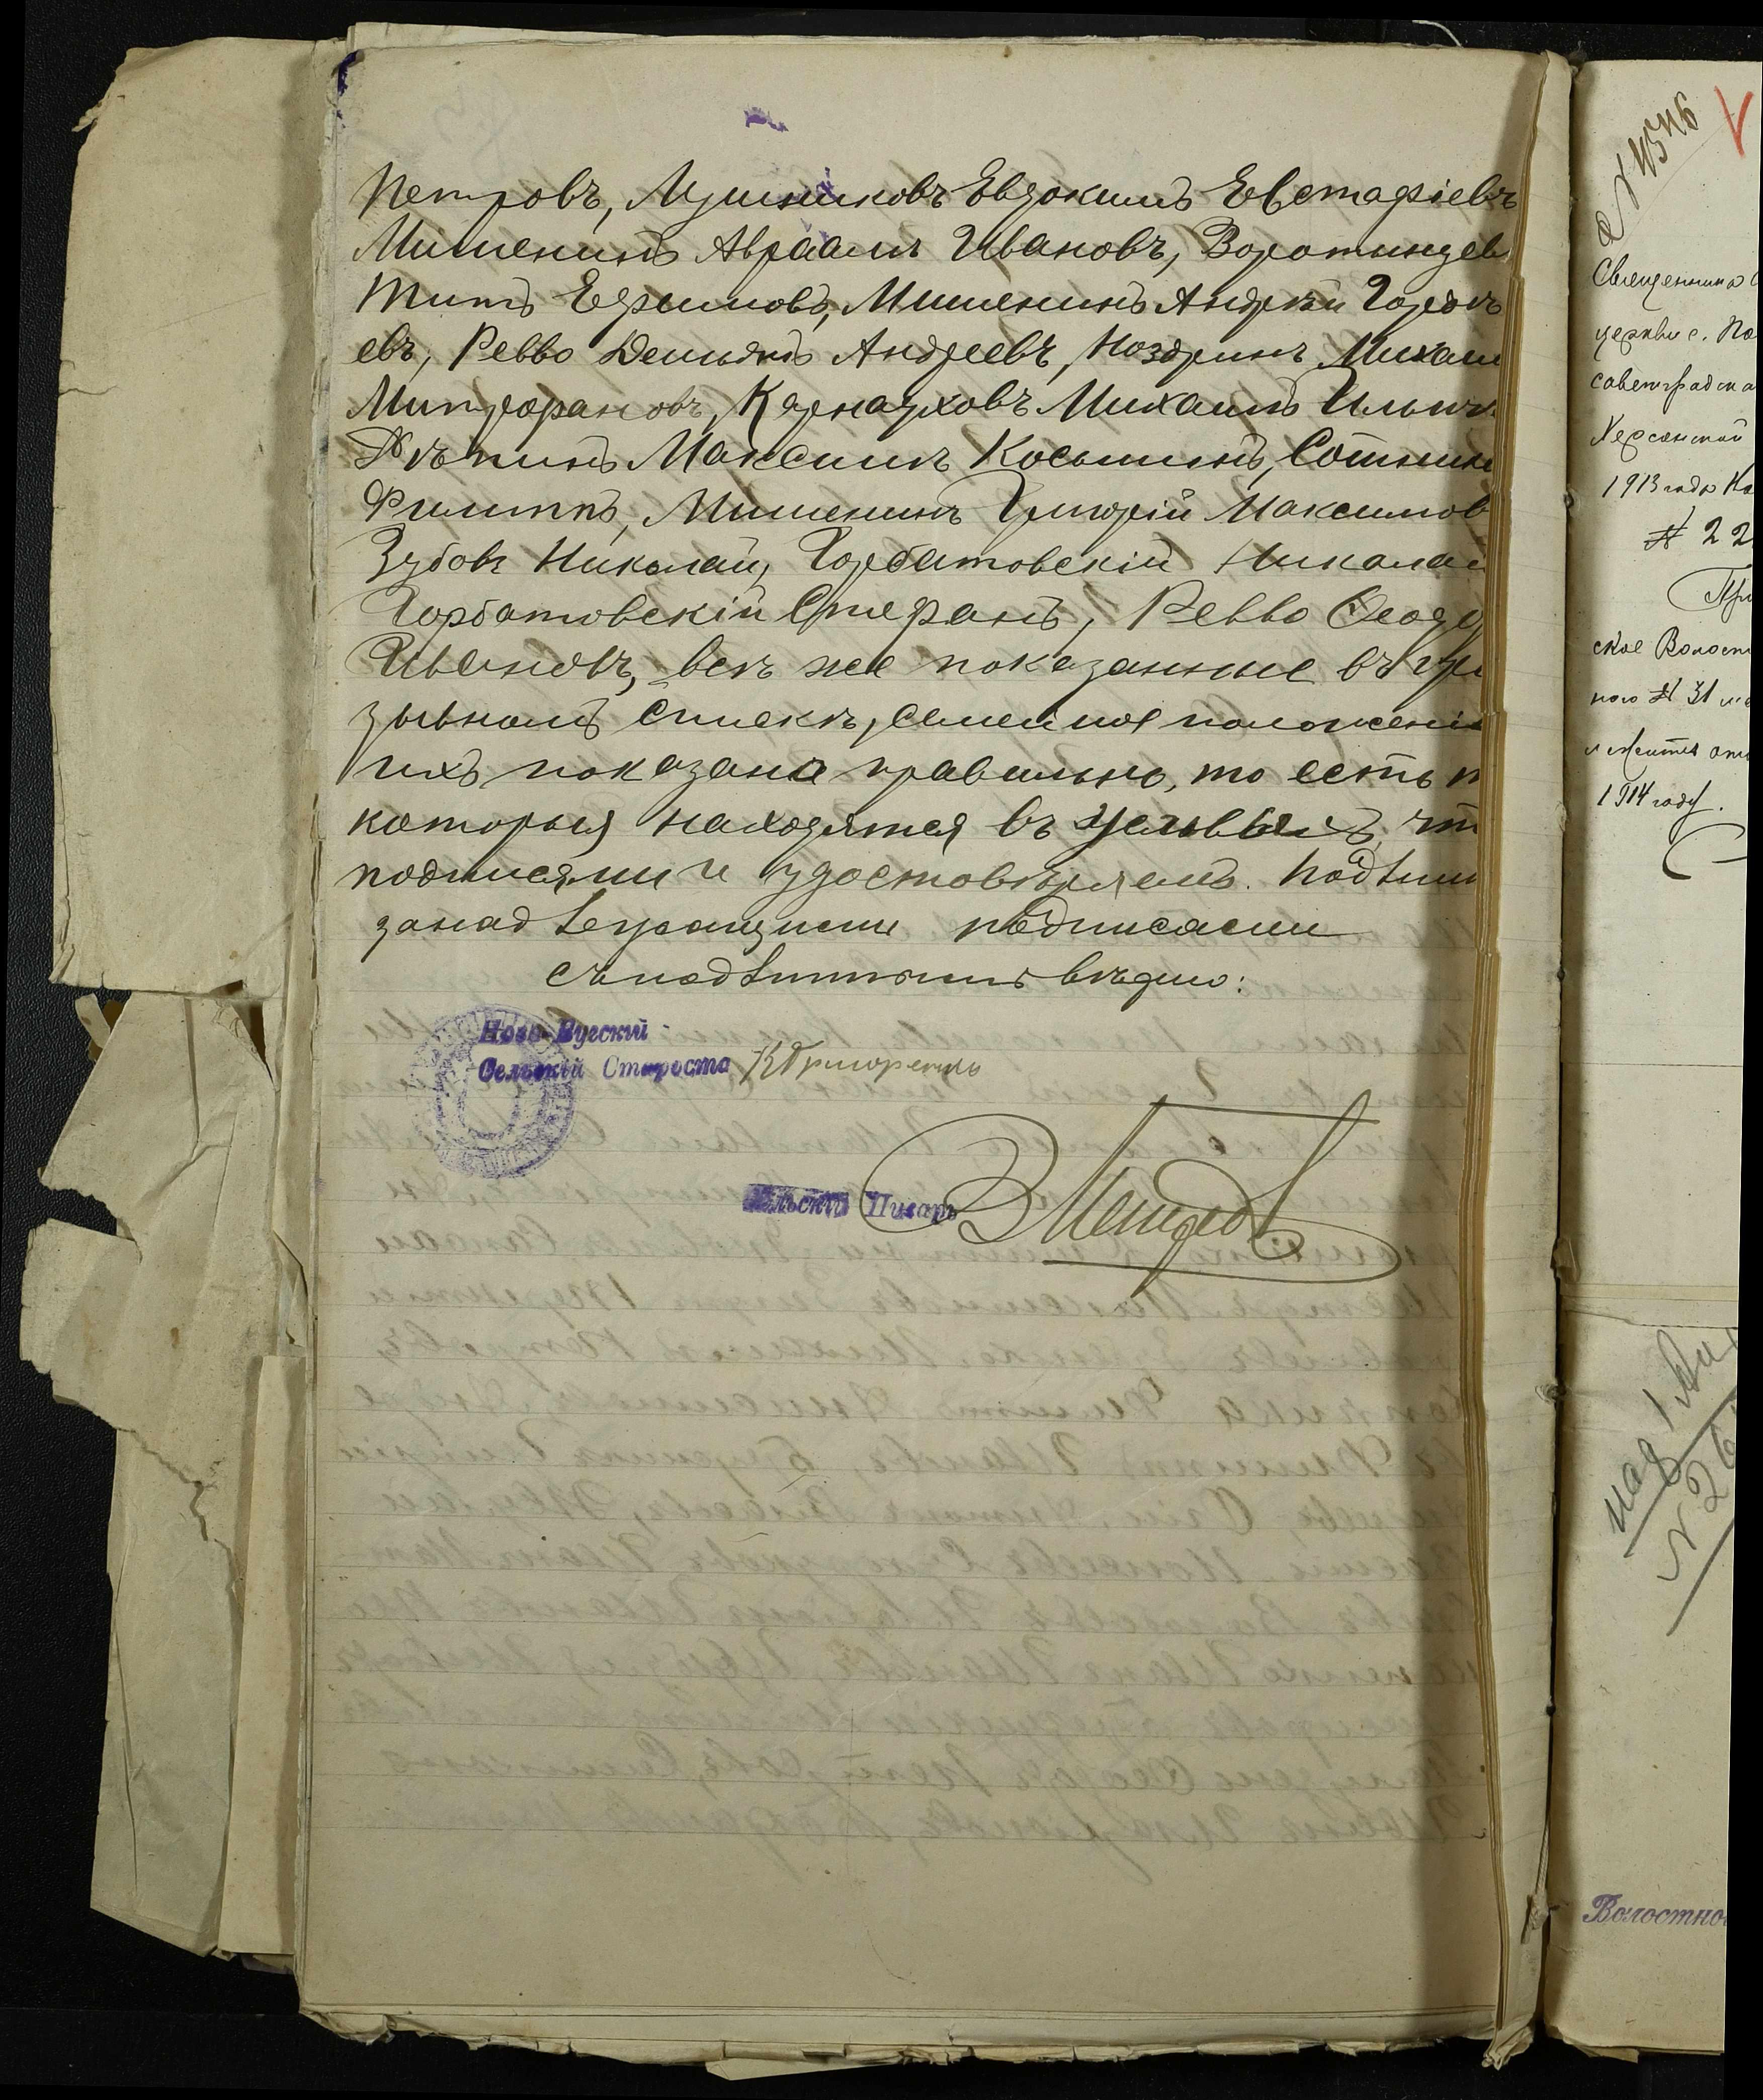 Петровъ, Лушниковъ Евдокимъ Евстафіевъ
Мишенинъ Авраамъ Ивановъ, Воротынцев
Титъ Ефимовъ, Мишенинъ Андрей Гордѣ
евъ, Ревво Демьянъ Андреевъ, Ноздринъ Михаил
Митрофановъ, Карнауховъ Михаилъ Ильичъ
Максимъ Косьминъ, Сотник
Филиппъ, Мишенинъ Григорій Максимов
Зубовъ Николай, Горбатовскій Николай
Горбатовскій Стефанъ, Ревво Феодор
Ивановъ, всѣ же показанные въ при
зывномъ спискѣ, семейное положеніе
ихъ показана правильно, то есть
которыя находятся въ чт
подписями и удостовѣряемъ. Подлин
за надлежащими подписами
съ подлиннымъ вѣрно:
Ново-Бугскій
Сельскій Староста КГригоренко
льскій Писарь
Священника
церкви с.
Херсонской
1913 года
№ 22
ское Волостн
№ 31
1914 году.
№ 2
Волостно